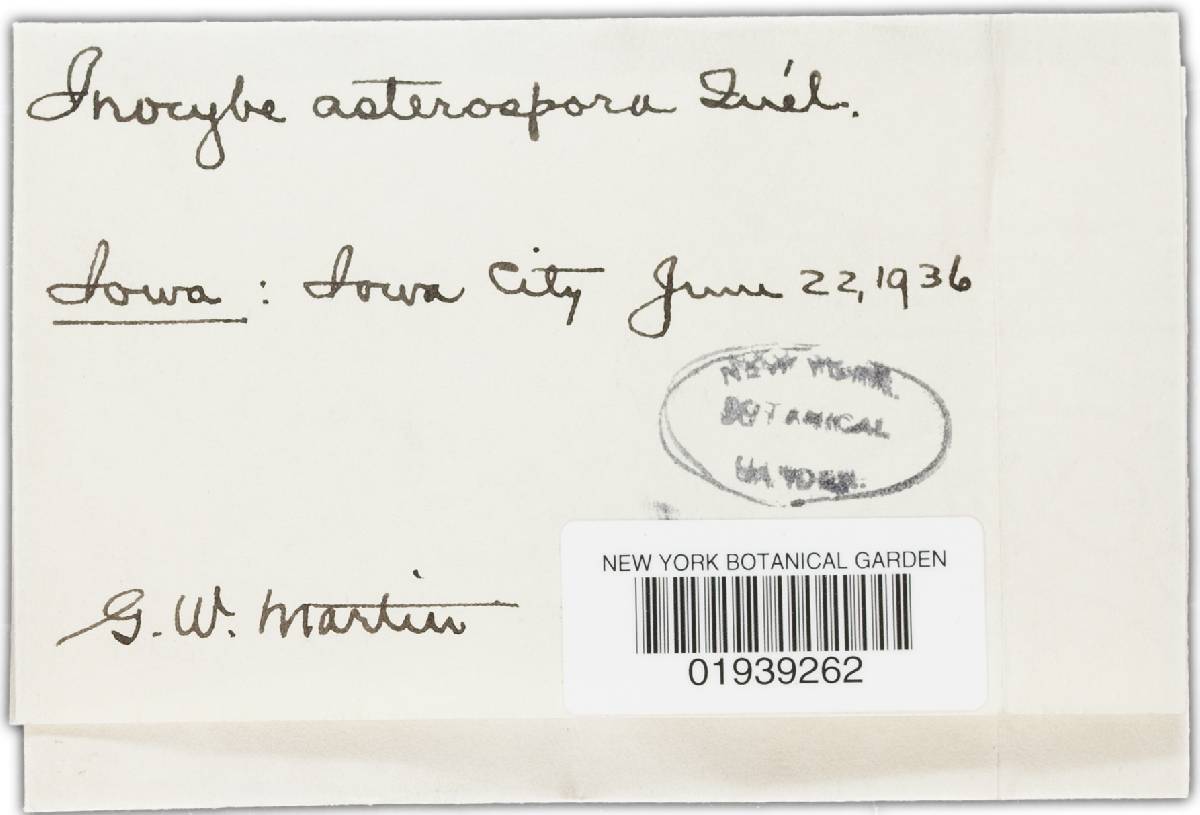 Inocybe asterospora Quél.
Iowa : Iowa City June 22, 1936
NEW YORK
BOTANICAL
GARDEN.
G. W. Martin
NEW YORK BOTANICAL GARDEN
01939262